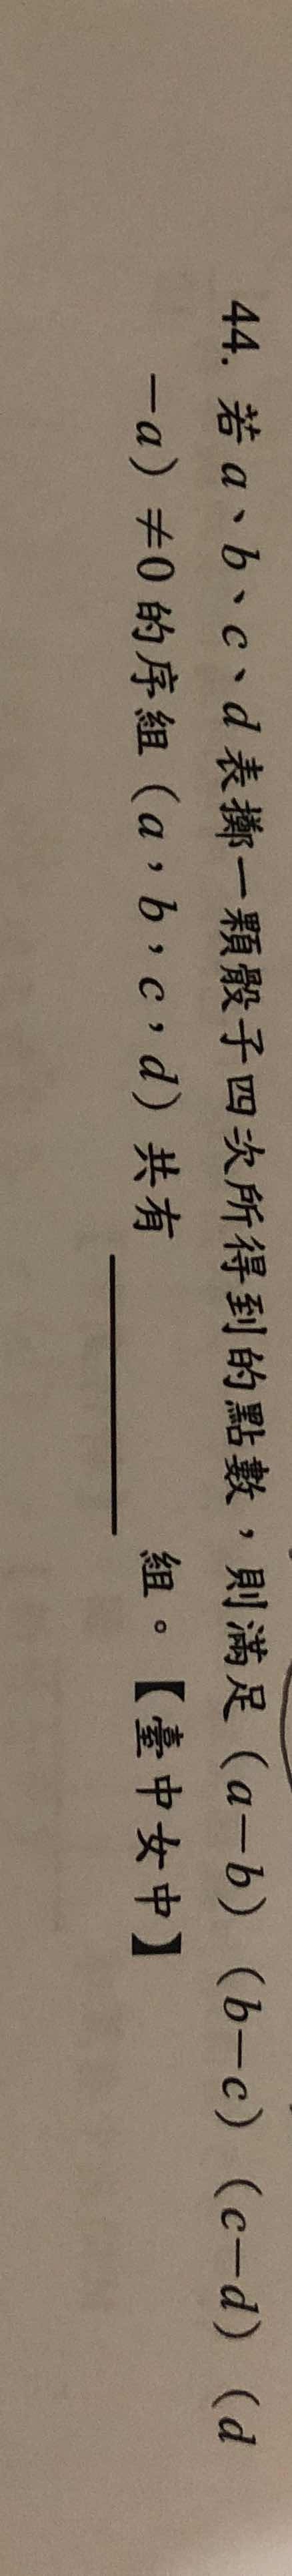 44. 若a、b、c、d表擲一顆骰子四次所得到的點數，則滿足（a－b）（b－c）（c－d）（d
－a）≠0的序組（a，b，c，d）共有＿＿＿＿組。【臺中女中】